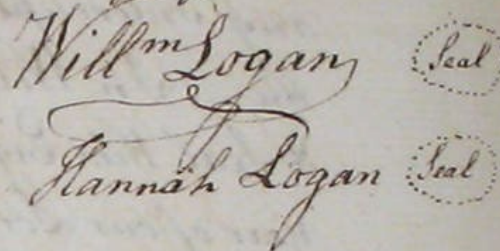 Willm Logan Seal
Hannah Logan Seal